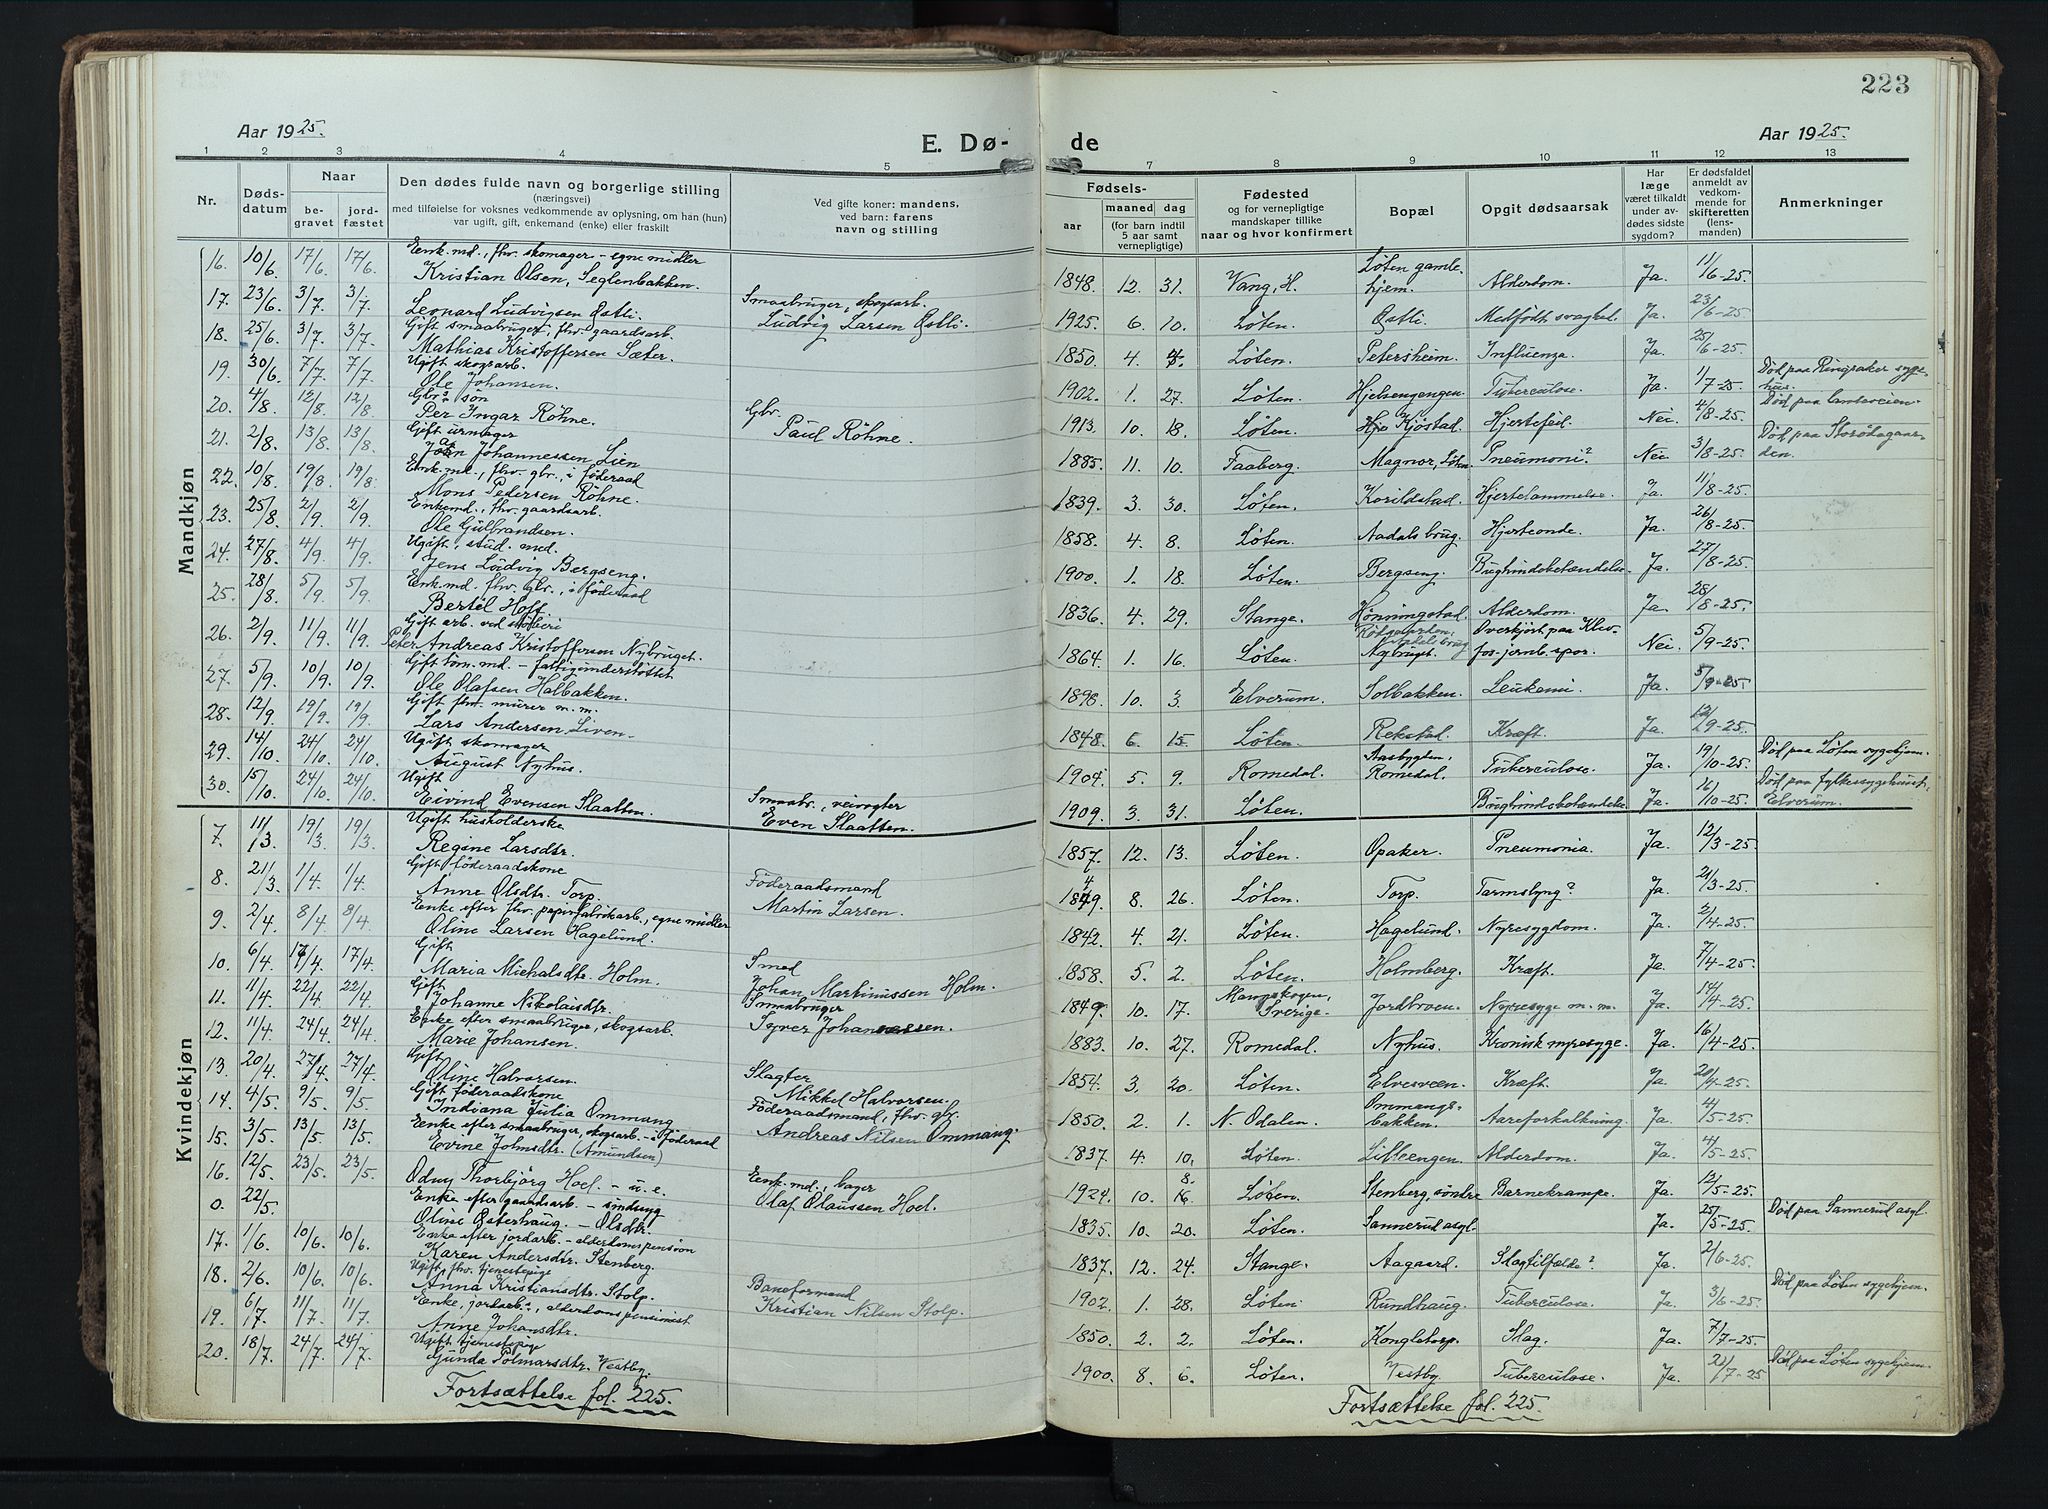 223
Aar 1925.
E. Dø-
de
Aar 1925.
1 2 3 4 5 7 8 9 10 11 12 13
Nr.
Døds-
datum
Naar
be-
gravet
jord-
fæstet
Den dødes fulde navn og borgerlige stilling
(næringsvei)
med tilføielse for voksnes vedkommende av oplysning, om han (hun)
var ugift, gift, enkemand (enke) eller fraskilt
Ved gifte koner: mandens,
ved barn: farens
navn og stilling
Fødsels-
aar
maaned dag
(for barn indtil
5 aar samt
vernepligtige)
Fødested
og for vernepligtige
mandskaper tillike
naar og hvor konfirmert
Bopæl
Opgit dødsaarsak
Har
læge
været tilkaldt
under av-
dødes sidste
sygdom?
Er dødsfaldet
anmeldt av
vedkom-
mende for
skifteretten
(lens-
manden)
Anmerkninger
Mandkjøn
16. 10/6. 17/6. 17/6. Enk.md., fhv. skomager - egne midler
Kristian Olsen, Seglenbakken. 1848. 12. 31. Vang, H. Løten gamle-
hjem. Alderdom. Ja. 11/6-25.
17. 23/6. 3/7. 3/7. Leonard Ludvigsen Østli. Smaabruger, skogsarb.
Ludvig Larsen Østli. 1925. 6. 10. Løten. Østli. Medfødt svaghet. Ja. 23/6-25
18. 25/6. 3/7. 3/7. Gift smaabruger, fhv. gaardsarb.
Mathias Kristoffersen Sæter. 1850. 4. Løten. Petersheim. Influenza. Ja. 25/6-25.
19. 30/6. 7/7. 7/7. Ugift skogsarb.
Ole Johansen. 1902. 1. 27. Løten. Hjelsengengen. Tuberculose. Ja. 1/7-25. Død paa Ringsaker syge-
hus.
20. 4/8. 12/8. 12/8. Gbr.s søn
Per Ingar Röhne. Gbr.
Paul Röhne. 1913. 10. 18. Løten. Kjöstad. Hjertefeil. Nei. 4/8-25. Død paa landeveien.
21. 2/8. 13/8. 13/8. Gift urmager
Johannessen Lien 1885. 11. 10. Faaberg. Magnor, Løten. Pneumoni? Nei. 3/8-25. Død paa Storödegaar-
den.
22. 10/8. 19/8. 19/8. Enk.md., fhv. gbr., i föderaad
Mons Pedersen Röhne. 1839. 3. 30. Løten. Korildstad. Hjertelammelse. Ja. 11/8-25.
23. 25/8. 2/9. 2/9. Enkemd., fhv. gaardsarb.
Ole Gulbrandsen. 1858. 4. 8. Løten. Aadals brug. Hjerteonde. Ja. 26/8-25.
24. 27/8. 4/9. 4/9. Ugift, stud. med.
Jens Ludvig Bergseng. 1900. 1. 18. Løten. Bergseng. Bughindebetændelse. Ja. 27/8-25.
25. 28/8. 5/9. 5/9. Enk.md. fhv. Gbr., i föderaad
Bertel Hoff. 1836. 4. 29. Stange. Hönningstad. Alderdom. Ja. 28/8-25.
26. 2/9. 11/9. 11/9. Gift arb. ved støberi
Peter Andreas Kristoffersen Nybruget. 1864. 1. 16. Løten. Aadals brug
Nybruget. Overkjört paa Klev-
fos-jernb.spor. Nei. 5/9-25.
27. 5/9. 10/9. 10/9. Gift töm.md. - fattigunderstöttet
Ole Olafsen Halbakken. 1898. 10. 3. Elverum. Solbakken. Leukemi. Ja. 5/9-25
28. 12/9. 19/9. 19/9. Gift fhv. murer m.m.
Lars Andersen Liven. 1848. 6. 15. Løten. Rekstad. Kræft. Ja. 12/9-25.
29. 14/10. 24/10. 24/10. Ugift skomager
August Nyhus. 1904. 5. 9. Romedal. Aasbygden,
Romedal. Tuberculose. Ja. 19/10-25. Død paa Løten sygehjem.
30. 15/10. 24/10. 24/10. Ugift
Eivind Evensen Slaatten. Smaabr., veivogter
Even Slaatten. 1909. 3. 31. Løten. Bughindebetændelse. Ja. 16/10-25. Død paa fylkessygehuset,
Elverum.
Kvindekjøn
7. 11/3. 19/3. 19/3. Ugift husholderske
Regine Larsdtr. 1857. 12. 13. Løten. Opaker. Pneumonia. Ja. 12/3-25.
8. 21/3. 1/4. 1/4. Gift föderaadskone
Anne Olsdtr. Torp. Föderaadsmand
Martin Larsen. 1849. 8. 26. Løten. Torp. Tarmslyng? Ja. 21/3-25.
9. 2/4. 8/4. 8/4. Enke efter fhv. papirfabrikarb., egne midler
Oline Larsen Hagelund. 1842. 4. 21. Løten. Hagelund. Nyresygdom. Ja. 2/4-25.
10. 6/4. 17/4. 17/4. Gift
Maria Michalsdtr. Holm. Smed
Johan Martinussen Holm. 1858. 5. 2. Løten. Holmberg. Kræft. Ja. 7/4-25.
11. 11/4. 22/4. 22/4. Gift
Johanne Nikolaisdtr. Smaabruger
Syver Johannessen. 1849. 10. 17. Sverige. Jordbroen. Nyresyge m.m. Ja. 14/4-25.
12. 11/4. 24/4. 24/4. Enke efter smaabruger, skogsarb.
Marie Johansen. 1883. 10. 27. Romedal. Nyhus. Kronisk nyresyge. Ja. 16/4-25.
13. 20/4. 27/4. 27/4. Gift
Oline Halvorsen. Slagter
Mikkel Halvorsen. 1854. 3. 20. Løten. Elvesveen. Kræft. Ja. 20/4-25.
14. 4/5. 9/5. 9/5. Gift föderaadskone
Indiana Julia Ommang Föderaadsmand, fhv. gbr.
Andreas Nilsen Ommang. 1850. 2. 1. N. Odalen. Ommangs-
bakken. Aareforkalkning. Ja. 4/5-25.
15. 3/5. 13/5. 13/5. Enke efter smaabruger, skogsarb. - i föderaad
Evine Johnsdtr. (Amundsen) 1837. 4. 10. Løten. Lilleengen. Alderdom. Ja. 4/5-25.
16. 12/5. 23/5. 23/5. Odny Thorbjörg Hoel. - u.e. Enk.md., bager
Olaf Olaussen Hoel. 1924. 10. 8. Løten. Stenberg, söndre Barnekrampe. Ja. 12/5-25.
0. 22/5. Enke efter gaardsarb. - sindssyg
Oline Østerhaug. - Olsdtr. 1835. 10. 20. Løten. Sannerud asyl. Ja. 25/5-25. Død paa Sannerud asyl.
17. 1/6. 10/6. 10/6. Enke efter jordarb. - alderdomspensjon
Karen Andersdtr. Stenberg. 1837. 12. 24. Stange. Aagaard. Slagtilfælde? Ja. 2/6-25.
18. 2/6. 10/6. 10/6. Ugift fhv. tjenestepige
Anna Kristiansdtr. Stolp. Baneformand
Kristian Nilsen Stolp. 1902. 1. 28. Løten. Rundhaug. Tuberculose. Ja. 3/6-25. Død paa Løten sygehjem.
19. 6/7. 11/7. 11/7. Enke, jordarb.s, alderdomspensionist
Anne Johansdtr. 1850. 2. 2. Løten. Kongletorp. Slag. Ja. 7/7-25.
20. 18/7. 24/7. 24/7. Ugift tjenestepige
Gunda Polmarsdtr. Vestby. 1900. 8. 6. Løten. Vestby. Tuberculose. Ja. /7-25 Død paa Løten sygehjem.
Fortsættelse fol. 225.
Fortsættelse fol. 225.